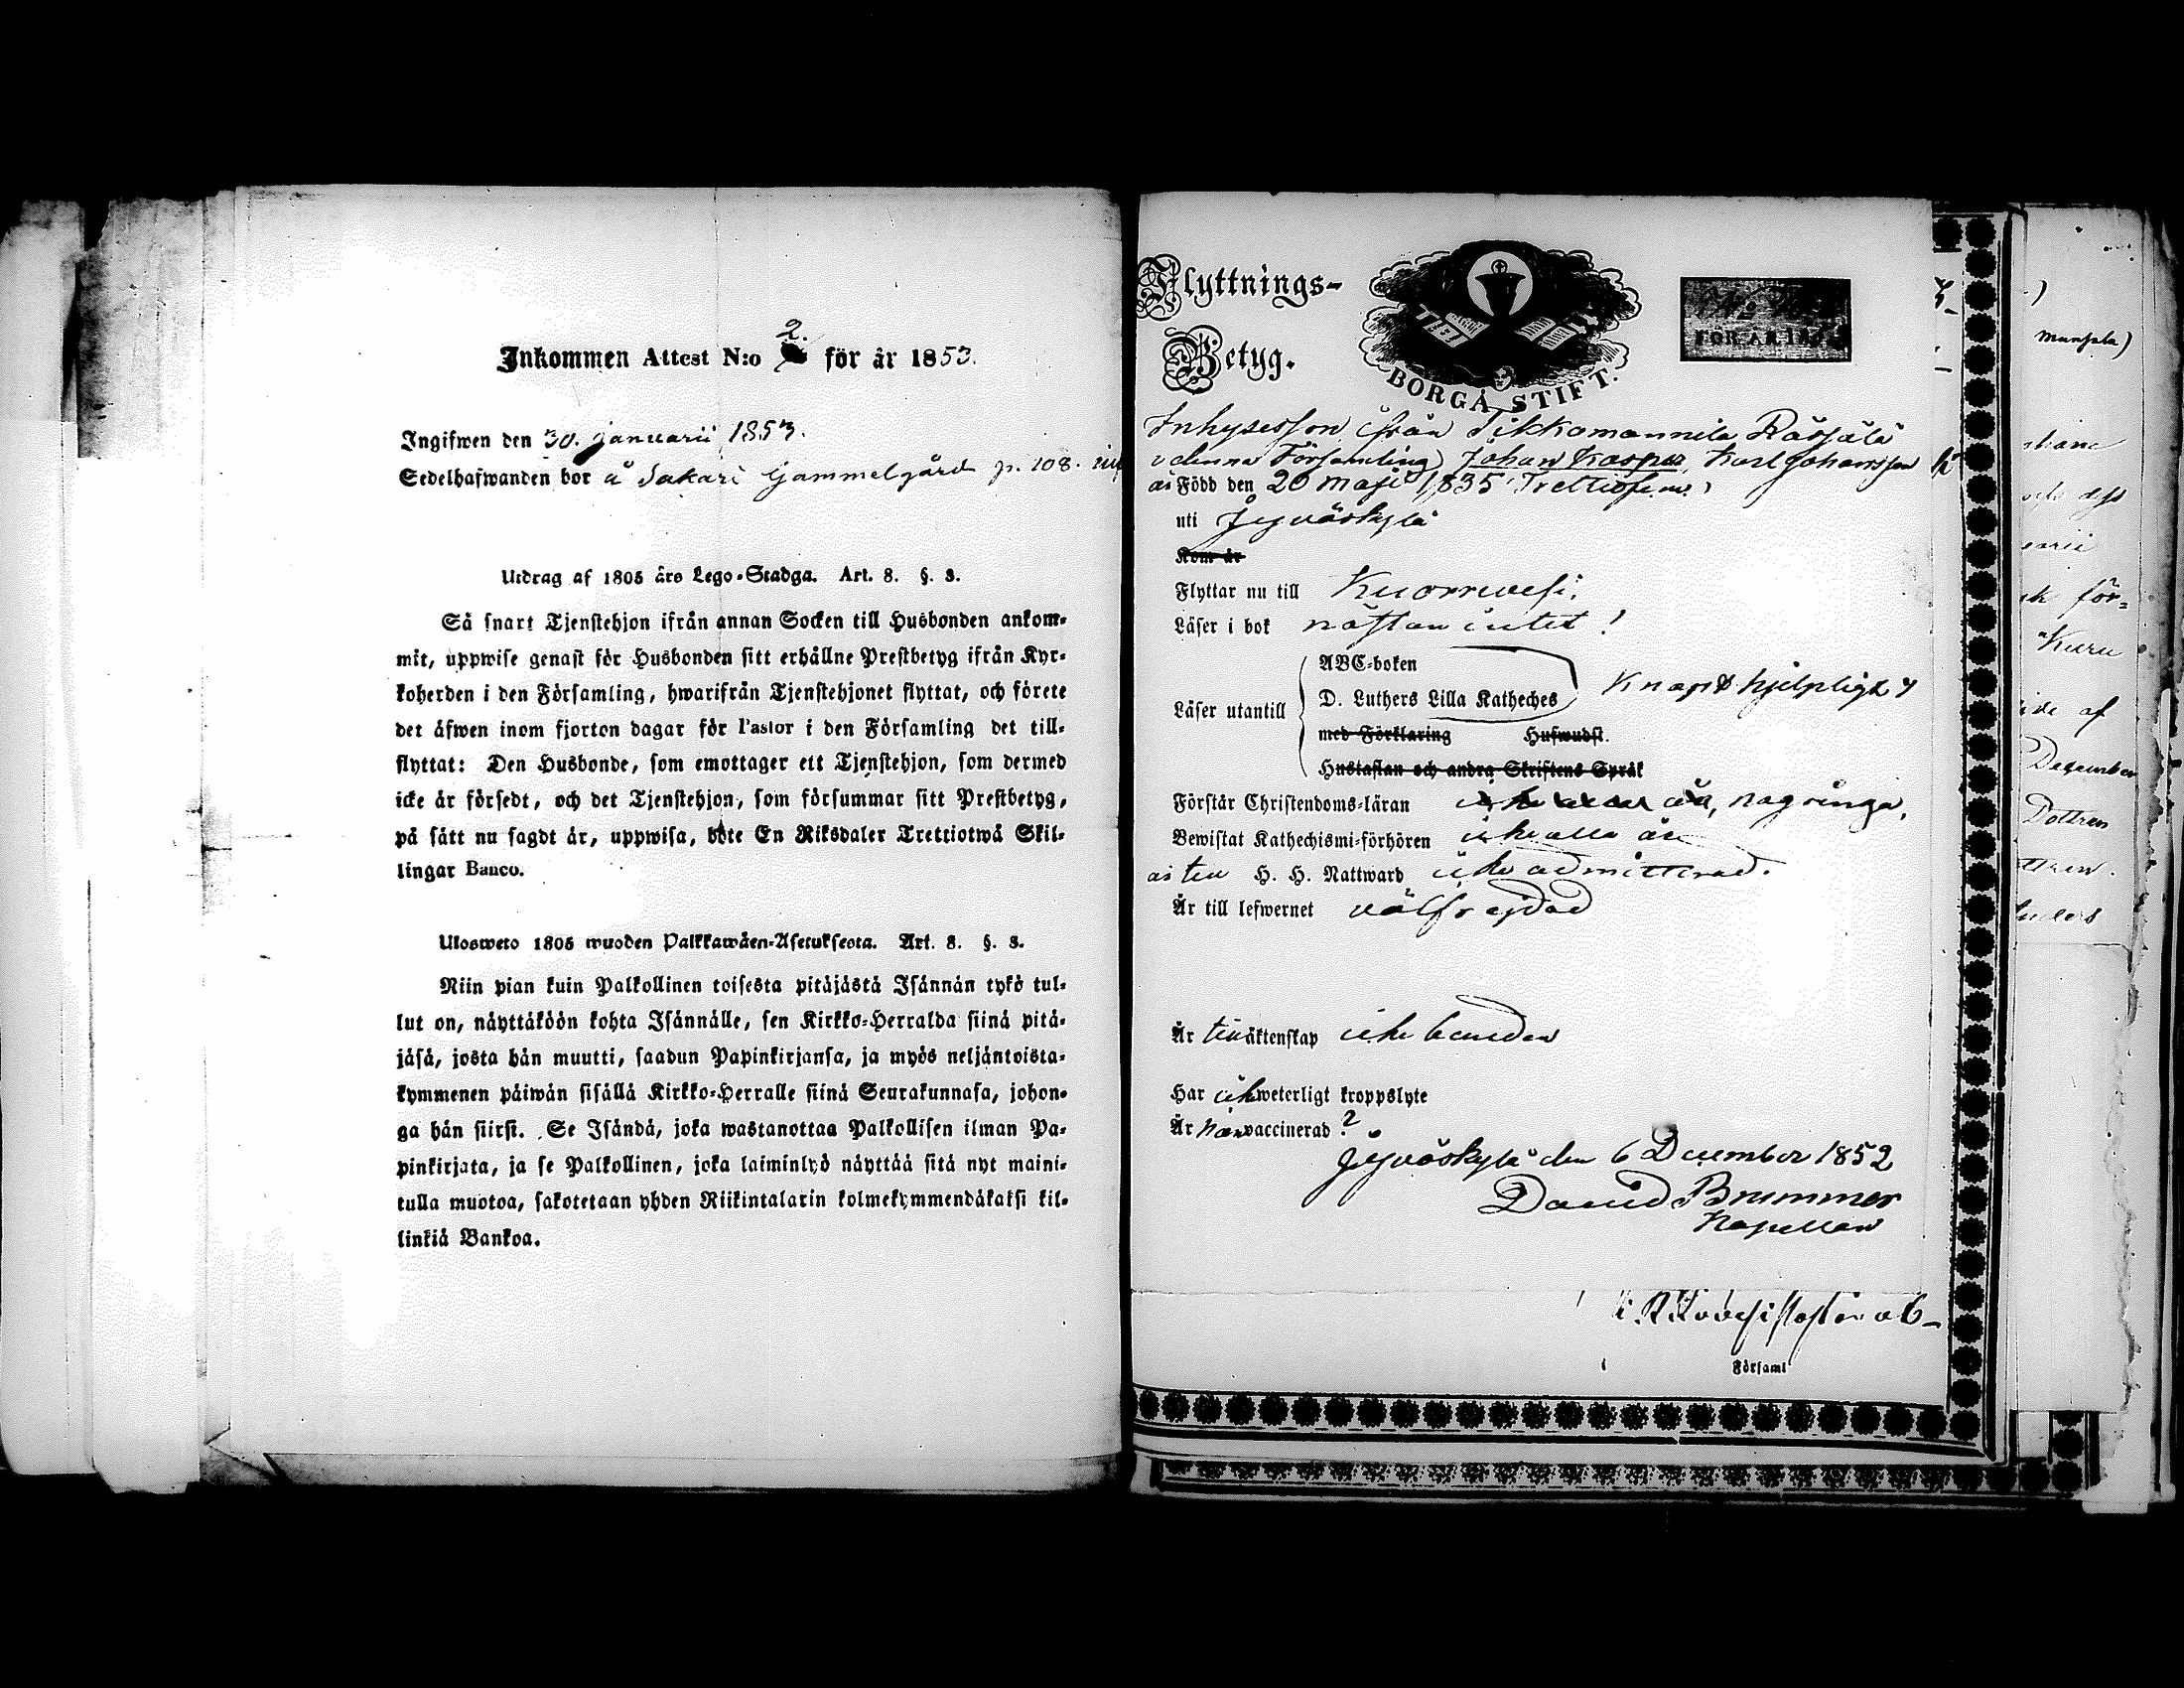 Inkommen Attest N:o 2. för år 1853.
Ingifwen den 30. Januarii 1853.
Sedelhafwanden bor å Sakari Gammelgård p. 108.
Utdrag af 1805 års Lego-Stadga. Art. 8. §. 3.
Så snart Tjenstehjon ifrån annan Socken till Husbonden ankom-
mit, uppwise genast för Husbonden sitt erhållne Prestbetyg ifrån Kyr-
koherden i den Församling, hwarifrån Tjenstehjonet flyttat, och förete
det äfwen inom fjorton dagar för Pastor i den Församling det till-
flyttat: Den Husbonde, som emottager ett Tjenstehjon, som dermed
icke är försedt, och det Tjenstehjon, som försummar sitt Prestbetyg,
på sätt nu sagdt är, uppwisa, böte En Riksdaler Trettiotwå Skil-
lingar Banco.
Ulosweto 1805 wuoden Palkkawäen-Asetuksesta. Art. 8. §. 3.
Niin pian kuin Palkollinen toisesta pitäjästä Isännän tykö tul-
lut on, näyttäköön kohta Isännälle, sen Kirkko-Herralda siinä pitä-
jäsä, josta hän muutti, saadun Papinkirjansa, ja myös neljäntoista-
kymmenen päiwän sisällä Kirkko-Herralle siinä Seurakunnasa, johon-
ga hän siirsi. Se Isändä, joka wastanottaa Palkollisen ilman Pa-
pinkirjata, ja se Palkollinen, joka laiminlyö näyttää sitä nyt maini-
tulla muotoa, sakotetaan yhden Riikintalarin kolmekymmendäkaksi kil-
linkiä Bankoa.
Flyttnings-
Betyg.
BORGÅ STIFT.
FÖR ÅR 18
Inhyseson ifrån Tikkamannila
i denna Församling Johan Kasper Karl Johansson
är Född den 20 Maji 1835 (Trettiofem)
uti Jyväskylä
Kom år
Flyttar nu till Kuorrevesi.
Läser i bok nästan intet!
Läser utantill
ABC-boken
D. Luthers Lilla Katheches
Knapt hjelpligt
med Förklaring Huswudst.
Hustaflan och andra Skriftens Språk
Förstår Christendoms-läran någ ringa.
Bewistat Kathechismi-förhören icke alla år
H. H. Nattward icke admitterad.
Är till lefwernet välfrejdad
Är till äktenskap icke bunden
Har icke weterligt kroppslyte
Är vaccinerad?
Jyväskylä den 6 December 1852
David Brummer
Kapellan
Församl